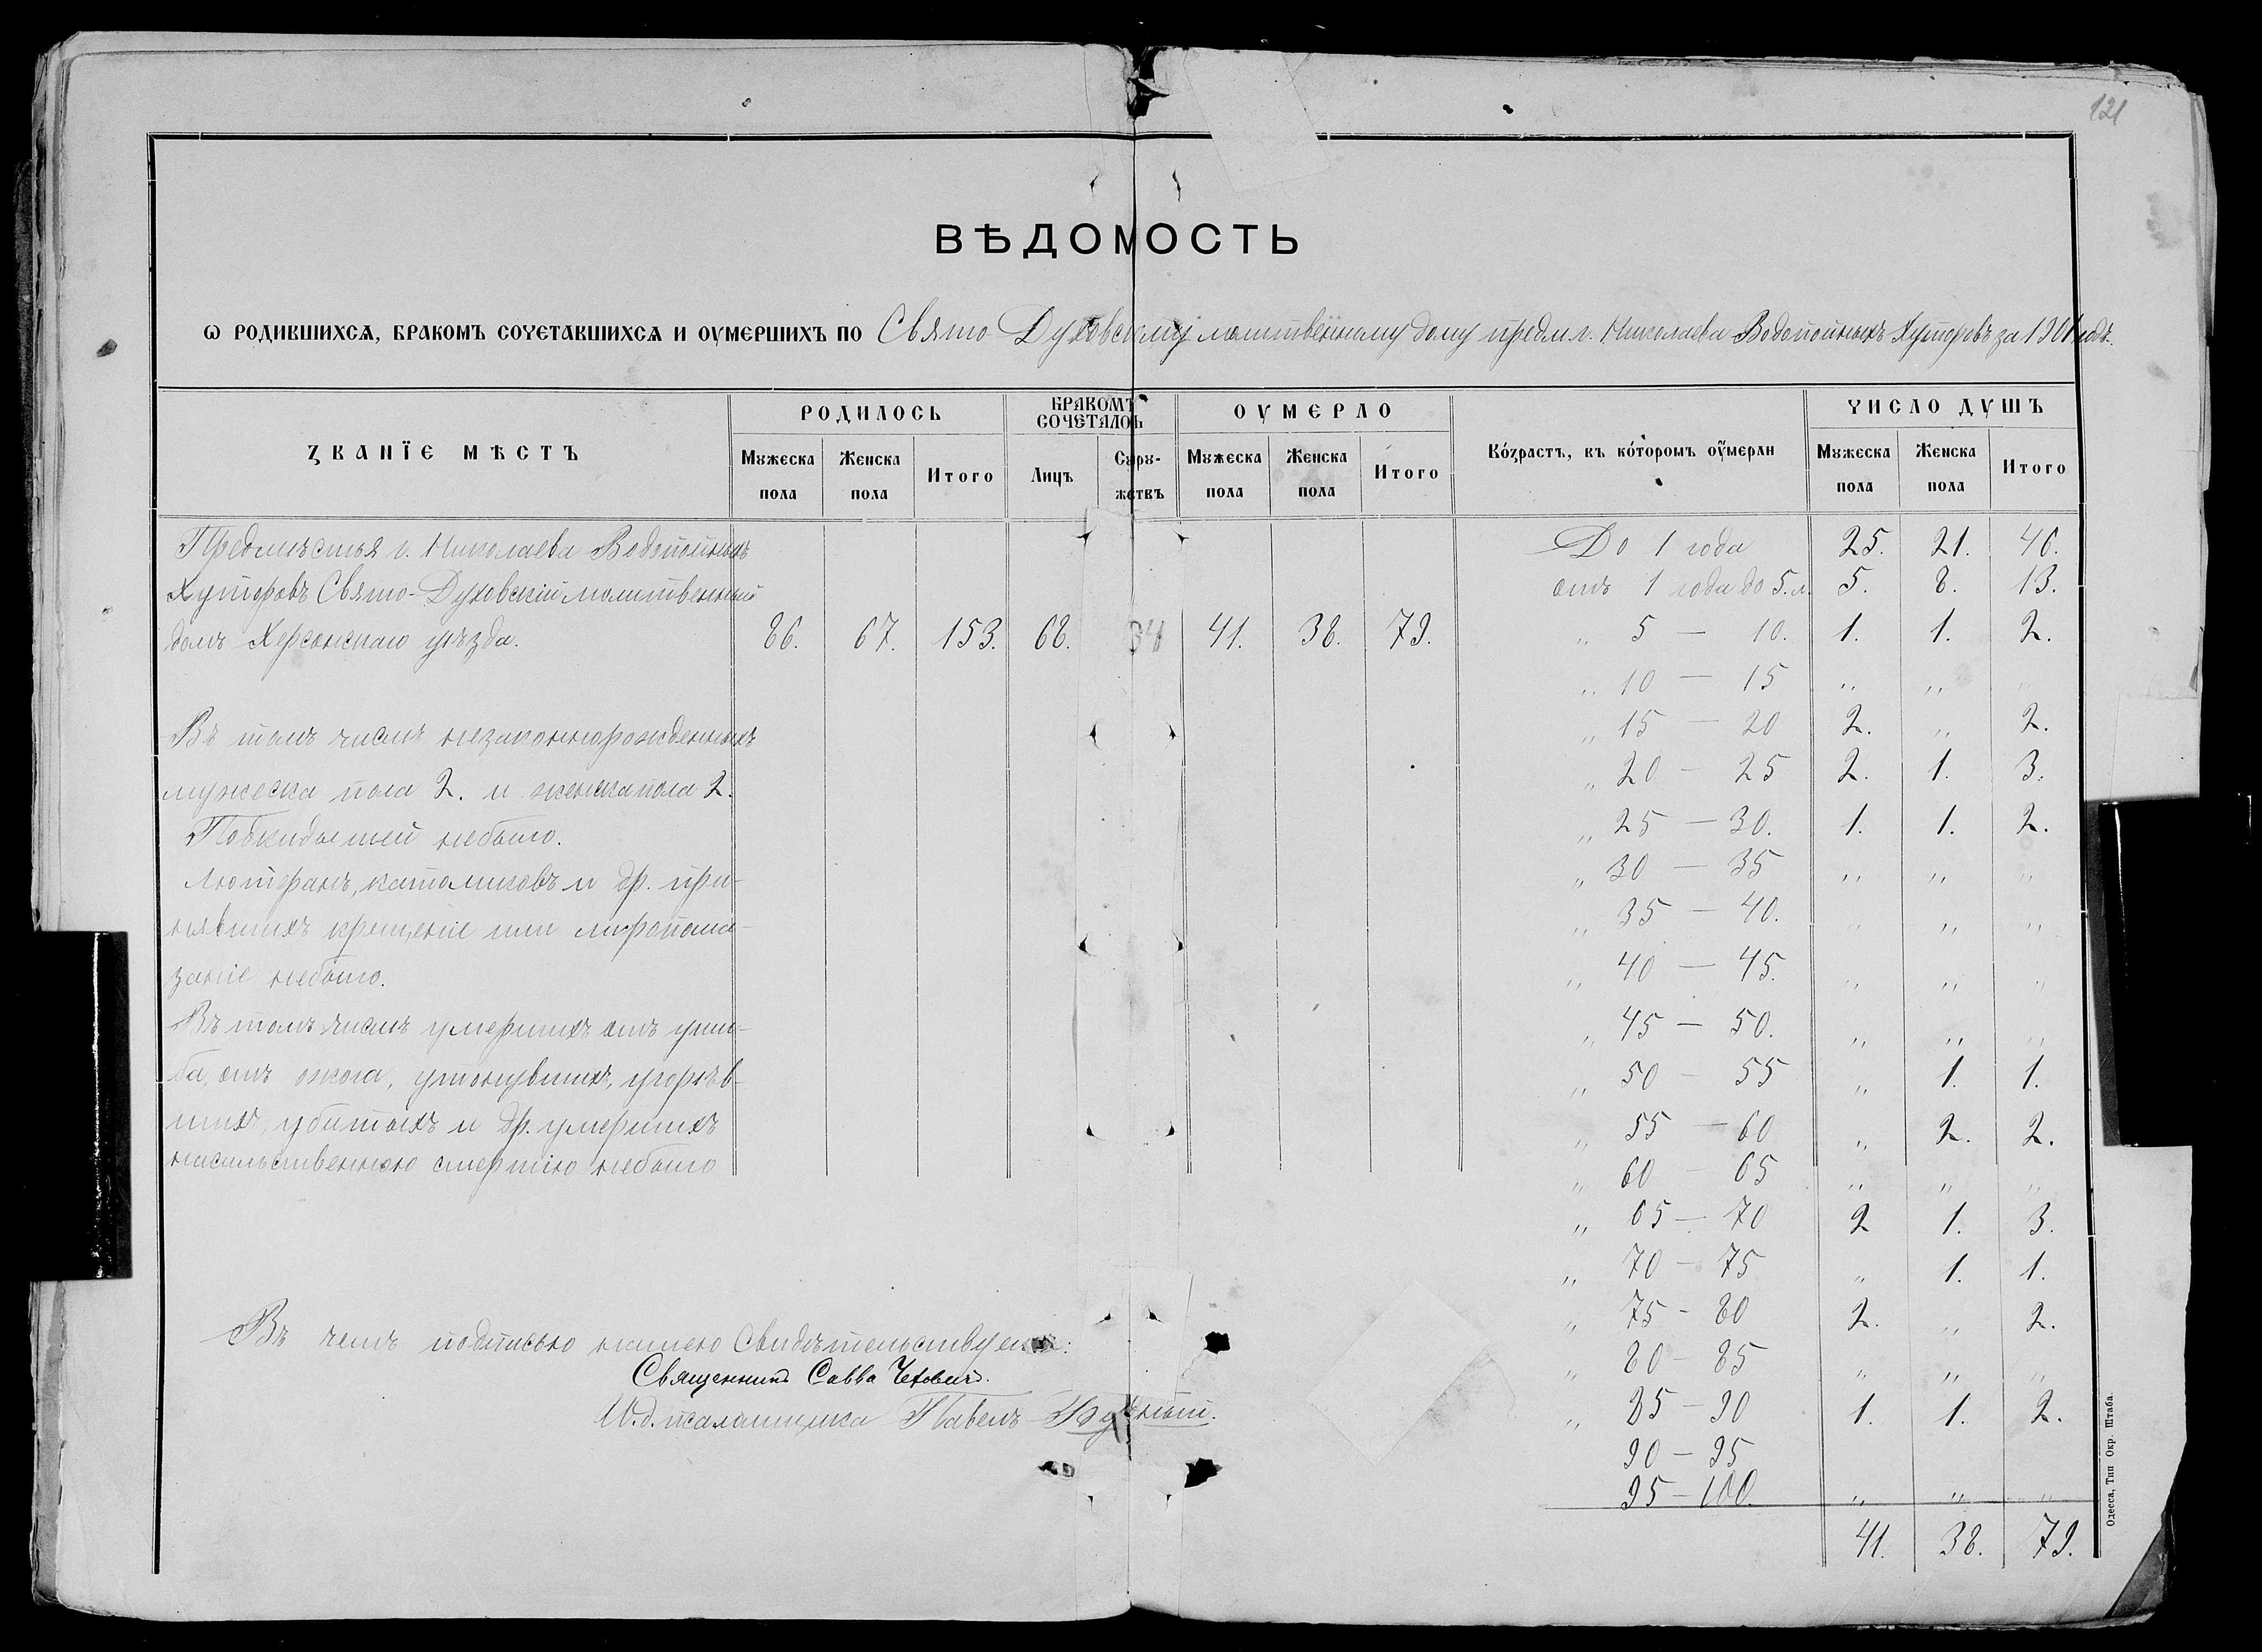 121
ВѢДОМОСТЬ
Ѡ РОДИВШИХСѦ, БРАКОМЪ СОЧЕТАВШИХСѦ И ОУМЕРШИХЪ ПО Свято-Духовскому молитвенному дому предм. г. Николаева Водопойныхъ Хуторовъ за 1901 годъ.
ЗВАНЇЕ МѢСТЪ
РОДИЛОСЬ
БРАКОМЪ СОЧЕТАЛОСЬ
ОУМЕРЛО
Возрастъ, въ которомъ оумерли
ЧИСЛО ДУШЪ
Мужеска пола Женска пола Итого Лицъ Супружествъ Мужеска пола Женска пола Итого Мужеска пола Женска пола Итого
Предмѣстья г. Николаева Водопойныхъ
Хуторовъ Свято-Духовскій молитвенный
домъ Херсонскаго уѣзда. 86. 67. 153. 68. 34 41. 38. 79.
Въ томъ числѣ незаконнорожденныхъ
мужеска пола 2. и женска пола 2.
Подкидышей небыло.
Лютеранъ, католиковъ и др. при-
нявшихъ крещеніе или мѵропома-
заніе небыло.
Въ томъ числѣ умершихъ отъ уши-
ба, отъ ожога, утонувшихъ, угорѣв-
шихъ, убитыхъ и др. умершихъ
насильственною смертію небыло
Въ чемъ подписью нашею свидѣтельствуемъ:
Священникъ Савва Чехович.
И.д. псаломщика Павелъ
До 1 года 25. 21. 46.
отъ 1 года до 5 л. 5. 8. 13.
„ 5 — 10. 1. 1. 2.
„ 10 — 15 „ „ „
„ 15 — 20 2. „ 2.
„ 20 — 25 2. 1. 3.
„ 25 — 30. 1. 1. 2.
„ 30 — 35 „ „ „
„ 35 — 40. „ „ „
„ 40 — 45. „ „ „
„ 45 — 50. „ „ „
„ 50 — 55 „ 1. 1.
„ 55 — 60 „ 2. 2.
„ 60 — 65 „ „ „
„ 65 — 70 2 1. 3.
„ 70 — 75 „ 1. 1.
„ 75 — 80 2. „ 2.
„ 80 — 85 „ „ „
„ 85 — 90 1. 1. 2.
90 — 95
95 — 100. „ „ „
41. 38. 79.
Одесса, Тип Окр. Штаба.